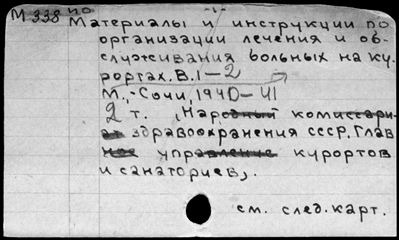 М 338 ио -1-
Материалы и инструкции по
организации лечения и об-
служивания больных на ку-
рортах. В. 1-2
М.,-Сочи, 1940-41
2 т. (Народный комиссари-
ат здравоохранения СССР. Глав
ное управление курортов
и санаториев).
см. след. карт.